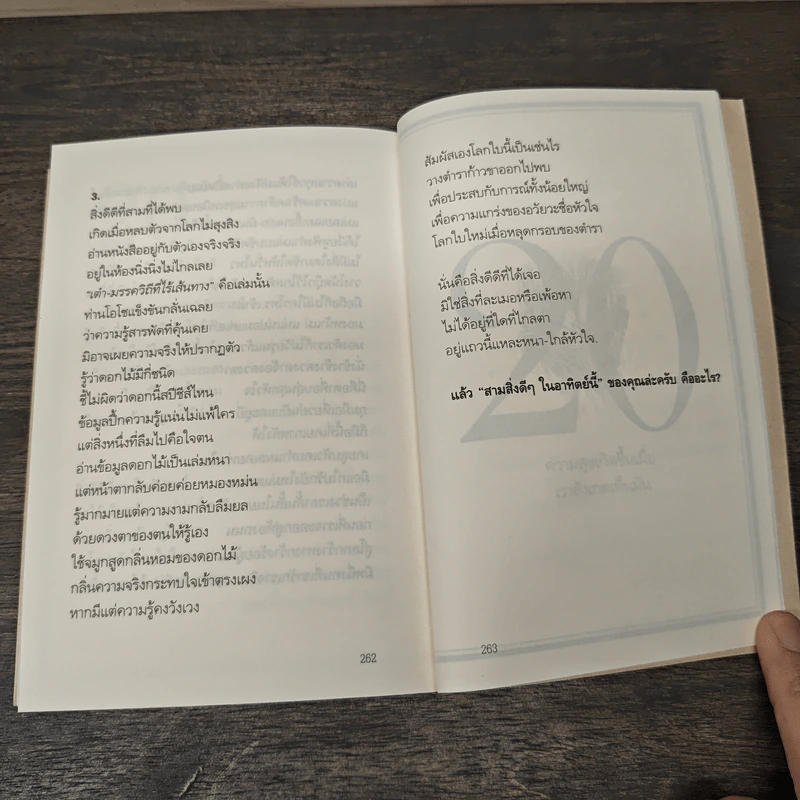 3.
สิ่งดีดีที่สามที่ได้พบ
เกิดเมื่อหลบตัวจากโลกไม่สุงสิง
อ่านหนังสืออยู่กับตัวเองจริงจริง
อยู่ในห้องนิ่งนิ่งไม่ไกลเลย
"เต๋า-มรรควิถีที่ไร้เส้นทาง" คือเล่มนั้น
ท่านโอโชแข็งขันกลั่นเฉลย
ว่าความรู้สารพัดที่คุ้นเคย
มิอาจเผยความจริงให้ปรากฏตัว
รู้ว่าดอกไม้มีกี่ชนิด
ชี้ไม่ผิดว่าดอกนี้สปีชีส์ไหน
ข้อมูลปึ้กความรู้แน่นไม่แพ้ใคร
แต่สิ่งหนึ่งที่ลืมไปคือใจตน
อ่านข้อมูลดอกไม้เป็นเล่มหนา
แต่หน้าตากลับค่อยค่อยหมองหม่น
รู้มากมายแต่ความงามกลับลืมยล
ด้วยดวงตาของตนให้รู้เอง
ใช้จมูกสูดกลิ่นหอมของดอกไม้
กลิ่นความจริงกระทบใจเข้าตรงเผง
หากมีแต่ความรู้คงวังเวง
262
สัมผัสเองโลกใบนี้เป็นเช่นไร
วางตำราก้าวขาออกไปพบ
เพื่อประสบกับการณ์ทั้งน้อยใหญ่
เพื่อความแกร่งของอวัยวะชื่อหัวใจ
โลกใบใหม่เมื่อหลุดกรอบของตำรา
นั่นคือสิ่งดีดีที่ได้เจอ
มิใช่สิ่งที่ละเมอหรือเพ้อหา
ไม่ได้อยู่ที่ใดที่ไกลตา
อยู่แถวนี้แหละหนา-ใกล้หัวใจ.
แล้ว "สามสิ่งดีๆ ในอาทิตย์นี้" ของคุณล่ะครับ คืออะไร?
20
263